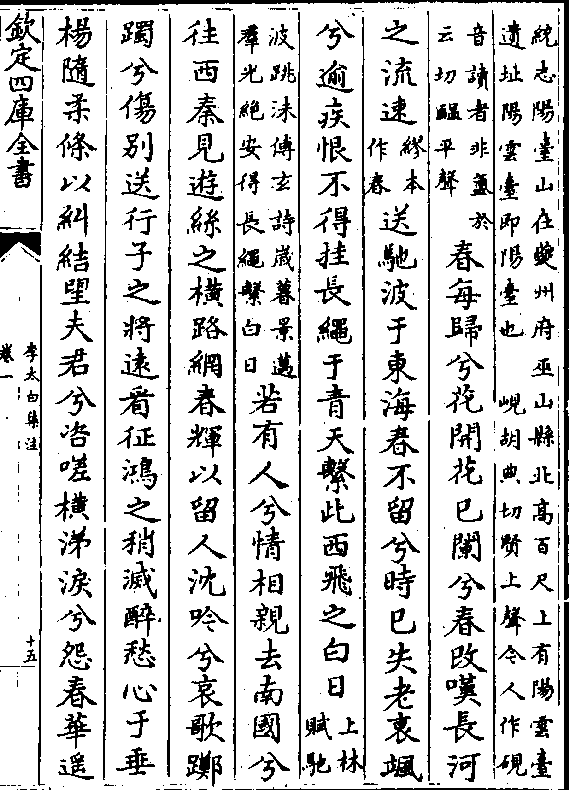 統志陽臺山在夔州府巫山縣北高百尺上有陽雲臺
遺址陽雲臺即陽臺也　峴胡典切賢上聲今人作硯
音讀者非氳於
云切醞平聲
春每歸兮花開花已闌兮春改嘆長河
之流速
繆本
作春
送馳波于東海春不留兮時已失老衰颯
兮逾疾恨不得挂長繩于青天繫此西飛之白日
上林
賦馳
波跳沫傅玄詩歲暮景邁
羣光絕安得長繩繫白日
若有人兮情相親去南國兮
往西秦見遊絲之橫路網春輝以留人沈吟兮哀歌躑
躅兮傷別送行子之將遠看征鴻之稍滅醉愁心于垂
楊隨柔條以糾結望夫君兮咨嗟橫涕淚兮怨春華遥
欽定四庫全書
李太白集注
卷一
十五